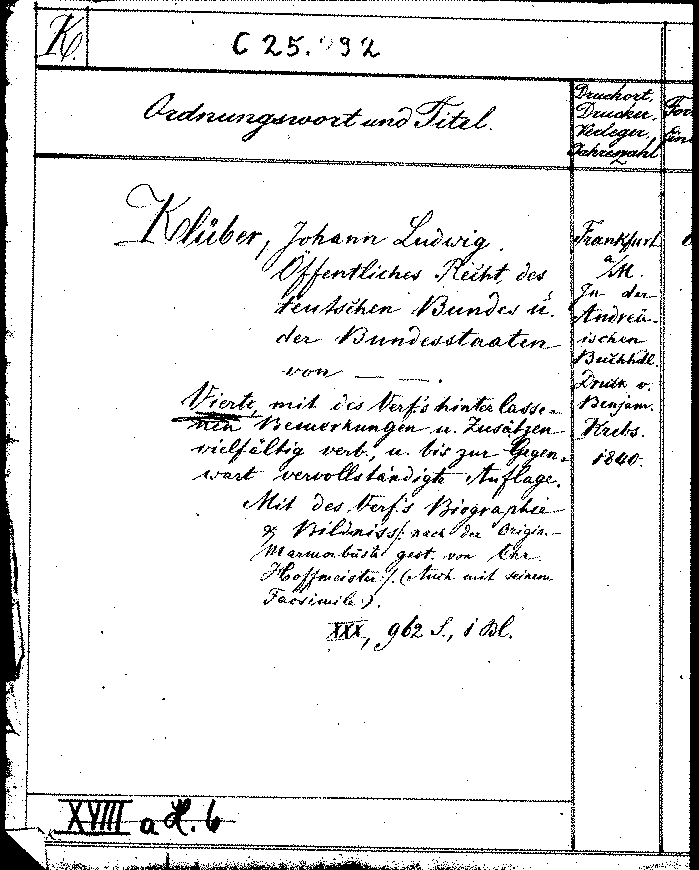 K.
C 25. 92
Ordnungswort und Titel.
Druckort,
Drucker,
Verleger,
Jahreszahl
For
Klüber, Johann Ludwig.
Öffentliches Recht des
teutschen Bundes u.
der Bundesstaaten
von — —.
Vierte, mit des Verf's hinterlasse-
nen Bemerkungen u. Zusätzen
vielfältig verb., u. bis zur Gegen-
wart vervollständigte Auflage.
Mit des Verf's Biographie
& Bildniss /: nach der Origin.
Marmorbüste gest. von Chr.
Hoffmeister :/. (Auch mit seinem
Facsimile).
XXX, 962 S., 1 Bl.
Frankfurt
a/M.
In der
Andreä-
ischen
Buchhdl.
Druck v.
Benjam.
Krebs.
1840.
XVIII a H. 6